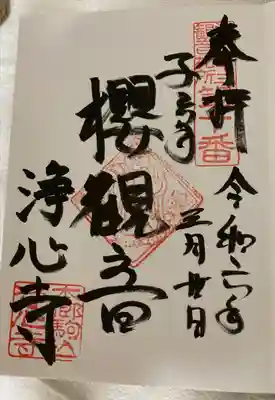 奉拝
令和六年
三月廿日
子育
櫻観音
浄心寺
第十番